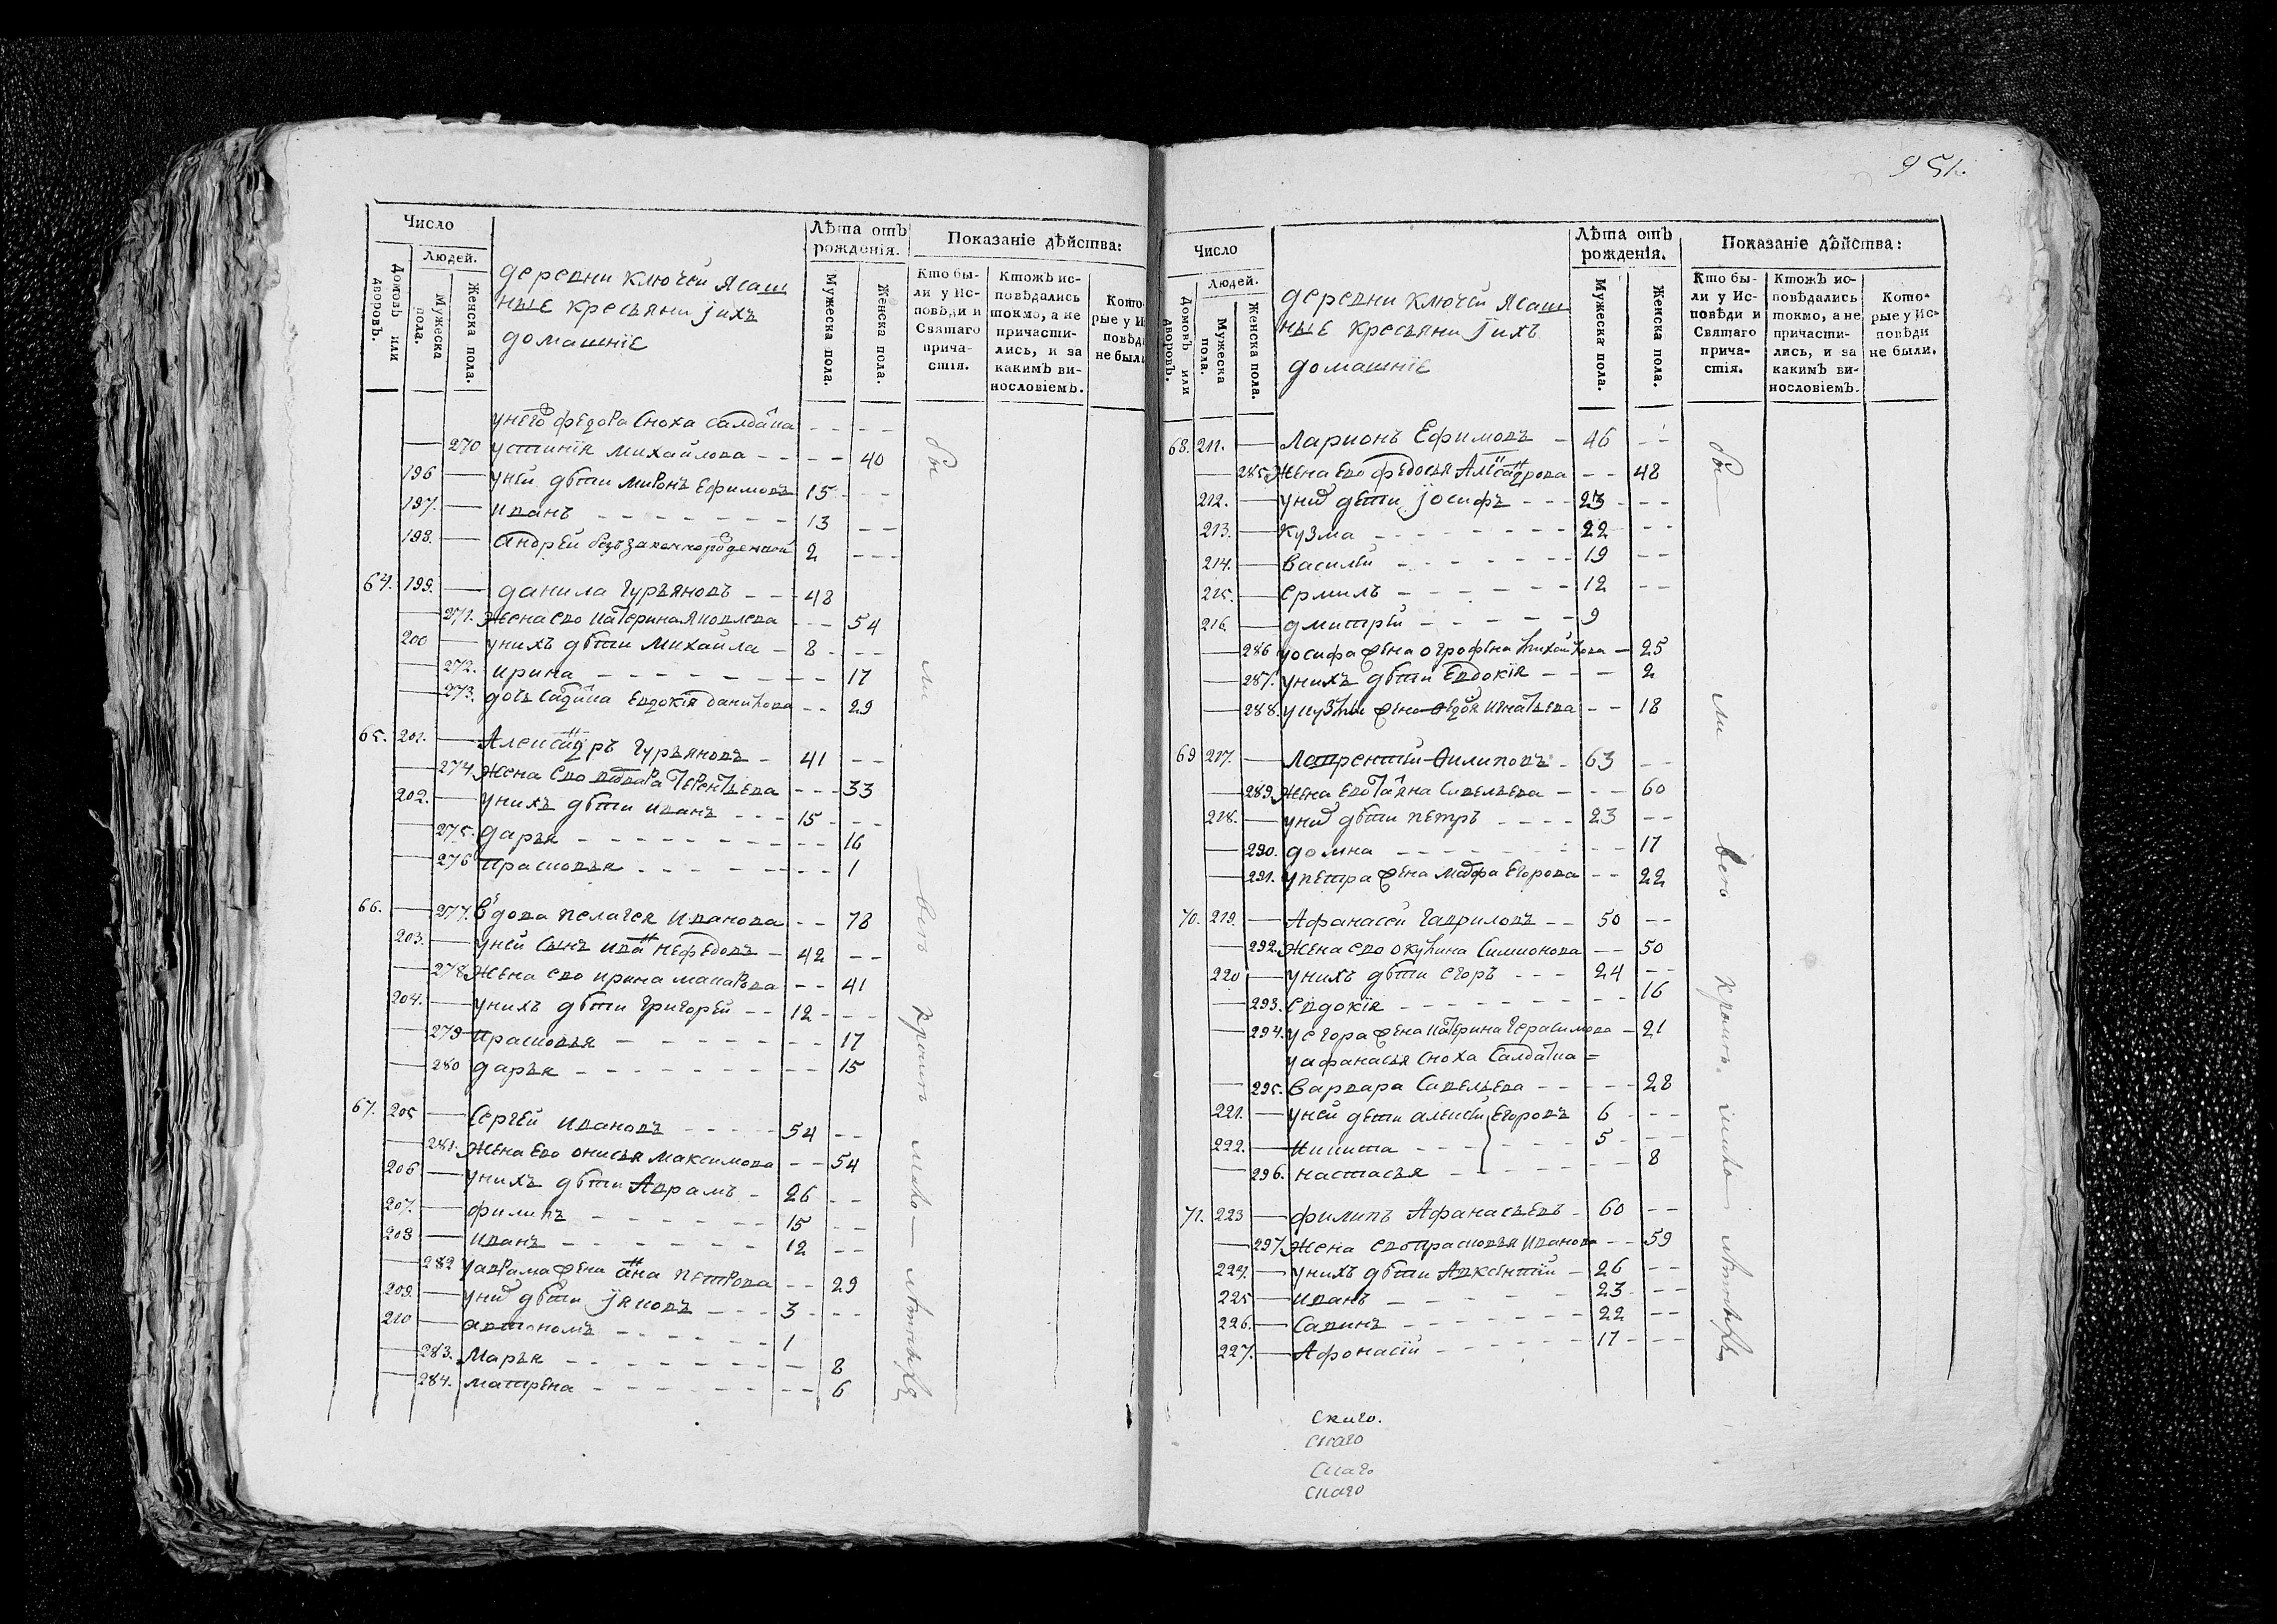 Число
Людей.
Домовъ или дворовъ.
Мужеска пола.
Женска пола.
деревни ключей ясаш
ные кресьяни јихъ
домашнїе
Лѣта отъ рожденїя.
Мужеска пола.
Женска пола.
Показанїе дѣйства:
Кто бы-
ли у Ис-
повѣди и
Святаго
прича-
стїя.
Ктожъ ис-
повѣдались
токмо, а не
причасти-
лись, и за
какимъ ви-
нословїемъ.
Кото-
рые у И
повѣд
не был
унего федора сноха салдатка
270 устинїя михайлова 40
196 уней дѣти миронъ ефимовъ 15
197. иванъ 13
198. андрей безъзаконнорожденной 2
64. 199. данила гурьяновъ 48
271. жена ево катерина яковлева 54
200 унихъ дѣти михайла 8
272. ирина 17
273. дочь салдатка евдокїя данилова 29
65. 201. Александръ гурьяновъ 41
274 жена ево варвара терентьева 33
202. унихъ дѣти иванъ 15
275. дарья 16
276 прасковья 1
66. 277. вдова пелагея иванова 78
203. уней сынъ иванъ нефедовъ 42
278. жена ево ирина макарова 41
204. унихъ дѣти григорей 12
279 прасковья 17
280 дарья 15
67. 205 сергей ивановъ 54
281. жена ево онисья максимова 54
206 унихъ дѣти аврамъ 26
207. филипъ 15
208 иванъ 12
282 уаврама жена анна петрова 29
209. унихъ дѣти јяковъ 3
210 автономъ 1
283. марья 8
284. матрена 6
бы
ли
951.
Число
Людей.
Домовъ или дворовъ.
Мужеска пола.
Женска пола.
деревни ключей ясаш
ные кресьяни јихъ
домашнїе
Лѣта отъ рожденїя.
Мужеска пола.
Женска пола.
Показанїе дѣйства:
Кто бы-
ли у Ис-
повѣди и
Святаго
прича-
стїя.
Ктожъ ис-
повѣдались
токмо, а не
причасти-
лись, и за
какимъ ви-
нословїемъ.
Кото-
рые у Ис-
повѣди
не были.
68. 211. Ларионъ Ефимовъ 46
285. жена ево федосья Александрова 48
212. унихъ дети јосифъ 23
213. кузма 22
214. василей 19
215. ермилъ 12
216. дмитрей 9
286 уосифа жена огрофена михайлова 25
287. унихъ дѣти евдокїя 2
288. укузмы жена федосья игнатьева 18
69 217. Лаврентей филиповъ 63
289. жена ево татьяна савельева 60
218. унихъ дѣти петръ 23
290. домна 17
291. упетра жена марфа егорова 22
70. 219. Афанасей гавриловъ 50
292. жена ево окулина симионова 50
220 унихъ дѣти егоръ 24
293. евдокїя 16
294. уегора жена катерина герасимова 21
уафанасья сноха салдатка
295. варвара савельева 28
221. уней дети алексей егоровъ 6
222. никита 5
296. настасья 8
71. 223 филипъ Афанасьевъ 60
297 жена ево прасковья иванова 59
224. унихъ дѣти авксентїй 26
225 иванъ 23
226. савинъ 22
227. Афонасїй 17
бы
ли